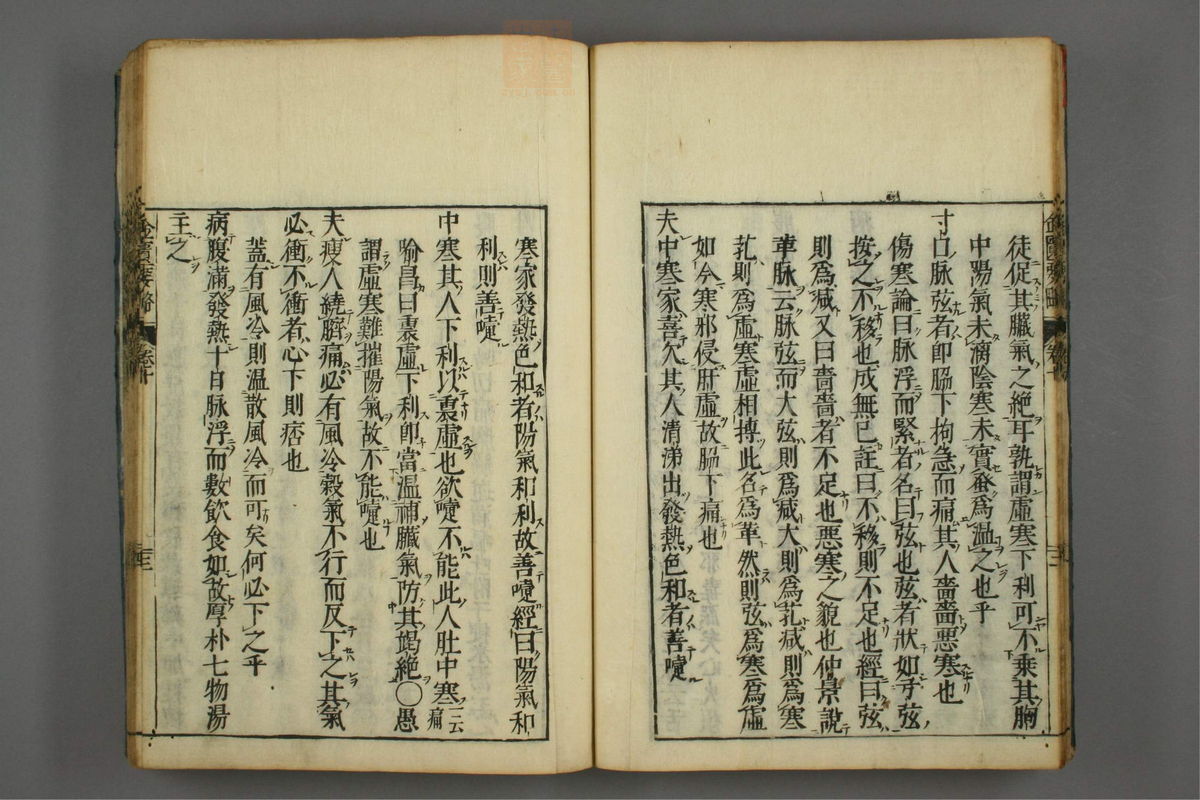 徒促其臟氣之絶耳孰謂虛寒下利可不乘其胸
中陽氣未漓陰寒未實蚤爲温之也乎
寸口脉弦者卽脇下拘急而痛其人嗇嗇惡寒也
傷寒論曰脉浮而緊者名曰弦也弦者狀如弓弦
按之不移也成無已註曰不移則不足也經曰弦
則爲减又曰嗇嗇者不足也惡寒之貌也仲景說
革脉云脉弦而大弦則爲减大則爲芤减則爲寒
芤則爲虛寒虛相摶此名爲革然則弦爲寒爲虛
如今寒邪侵肝虛故脇下痛也
夫中寒家喜欠其人清涕出發熱色和者善嚔
寒家發熱色和者陽氣和利故善嚔經曰陽氣和
利則善嚔
中寒其人下利以裏虛也欲嚔不能此人肚中寒一云痛
喻昌曰裏虛下利卽當温補臟氣防其竭絶〇愚
謂虛寒難摧陽氣故不能嚔也
夫瘦人繞臍痛必有風冷穀氣不行而反下之其氣
必衝不衝者心下則痞也
蓋有風冷則温散風冷而可矣何必下之乎
病腹滿發熱十日脉浮而數飲食如故厚朴七物湯
主之